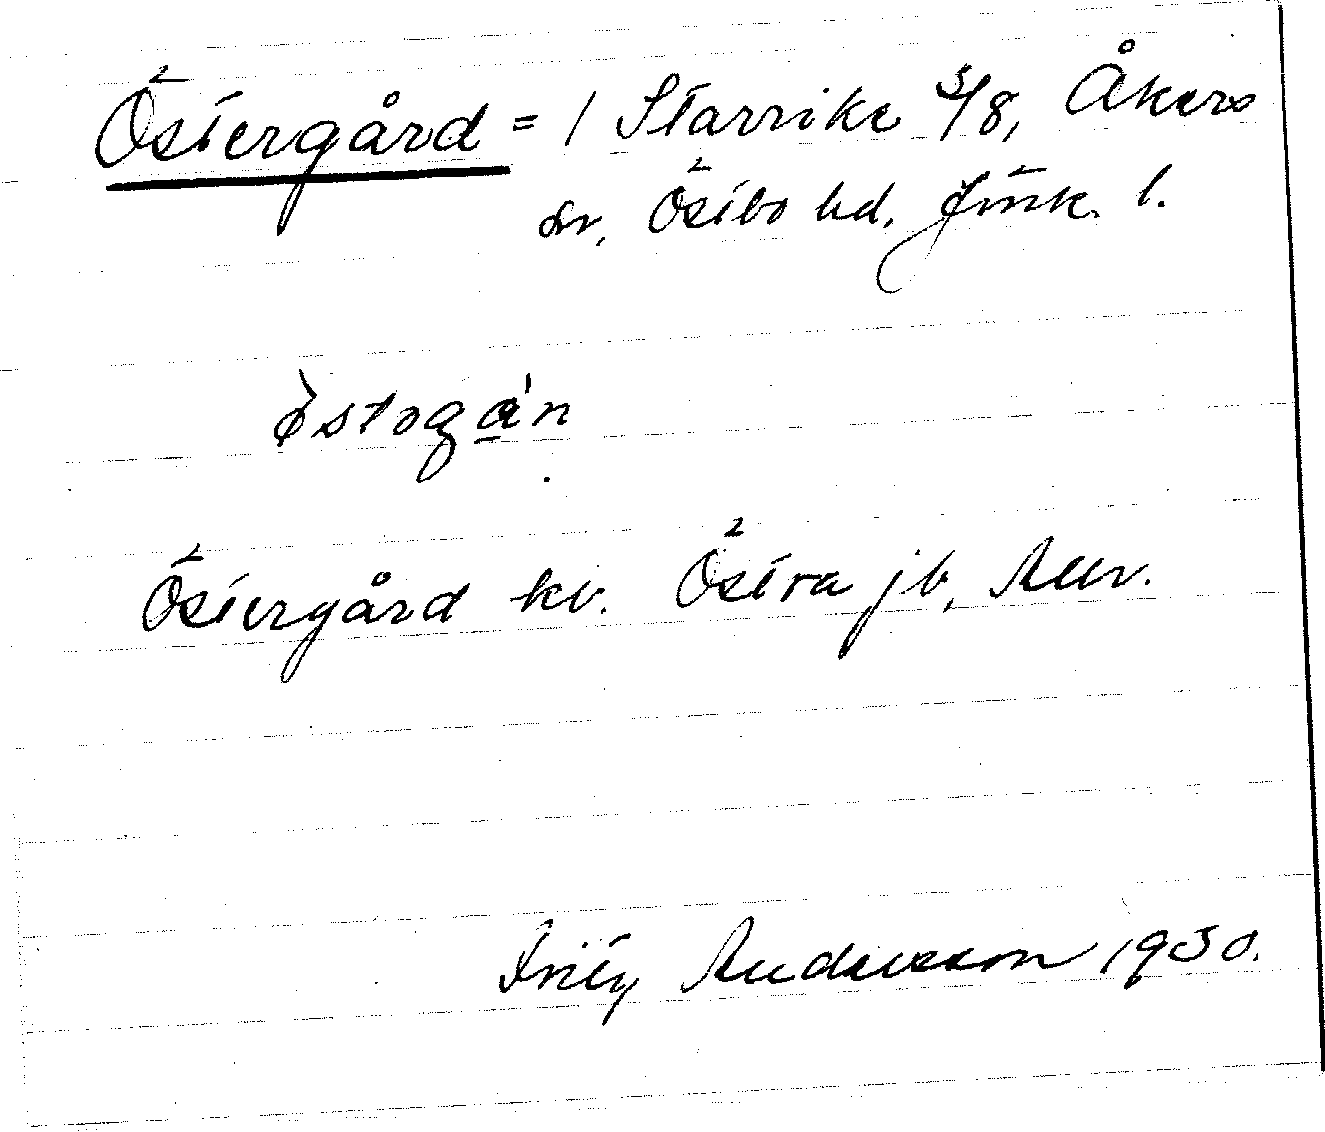 Östergård = 1 Starrike 3/8, Åkers
sn, Östbo hd. Jönk. l.
östəgån
Östergård kv. Östra jb, Aur.
Fritz Andersson 1930.